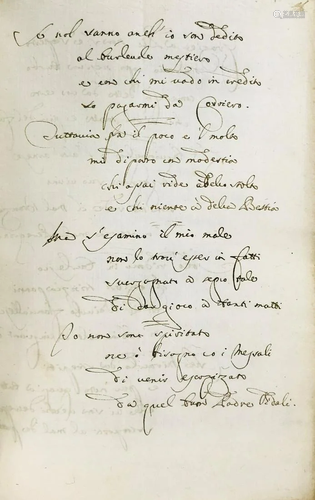 Se nol sanno anch'io son dedito
al burlevole mestiero
e con chi mi vado in credito
so pagarmi da Corsiero.
Tuttavia frà il poco e l molto
mi diporto con modestia
chi assai ride à dello stolto
e chi niente a della Bestia
Ma s'esamino il mio male
non lo trovo esser in fatti
svergognato a segno tale
di dar gioco a tanti matti
Io non sono spiritato
ne è bisogno co i Messali
di venir esorcizzato
da quel buon Padre Vidali.